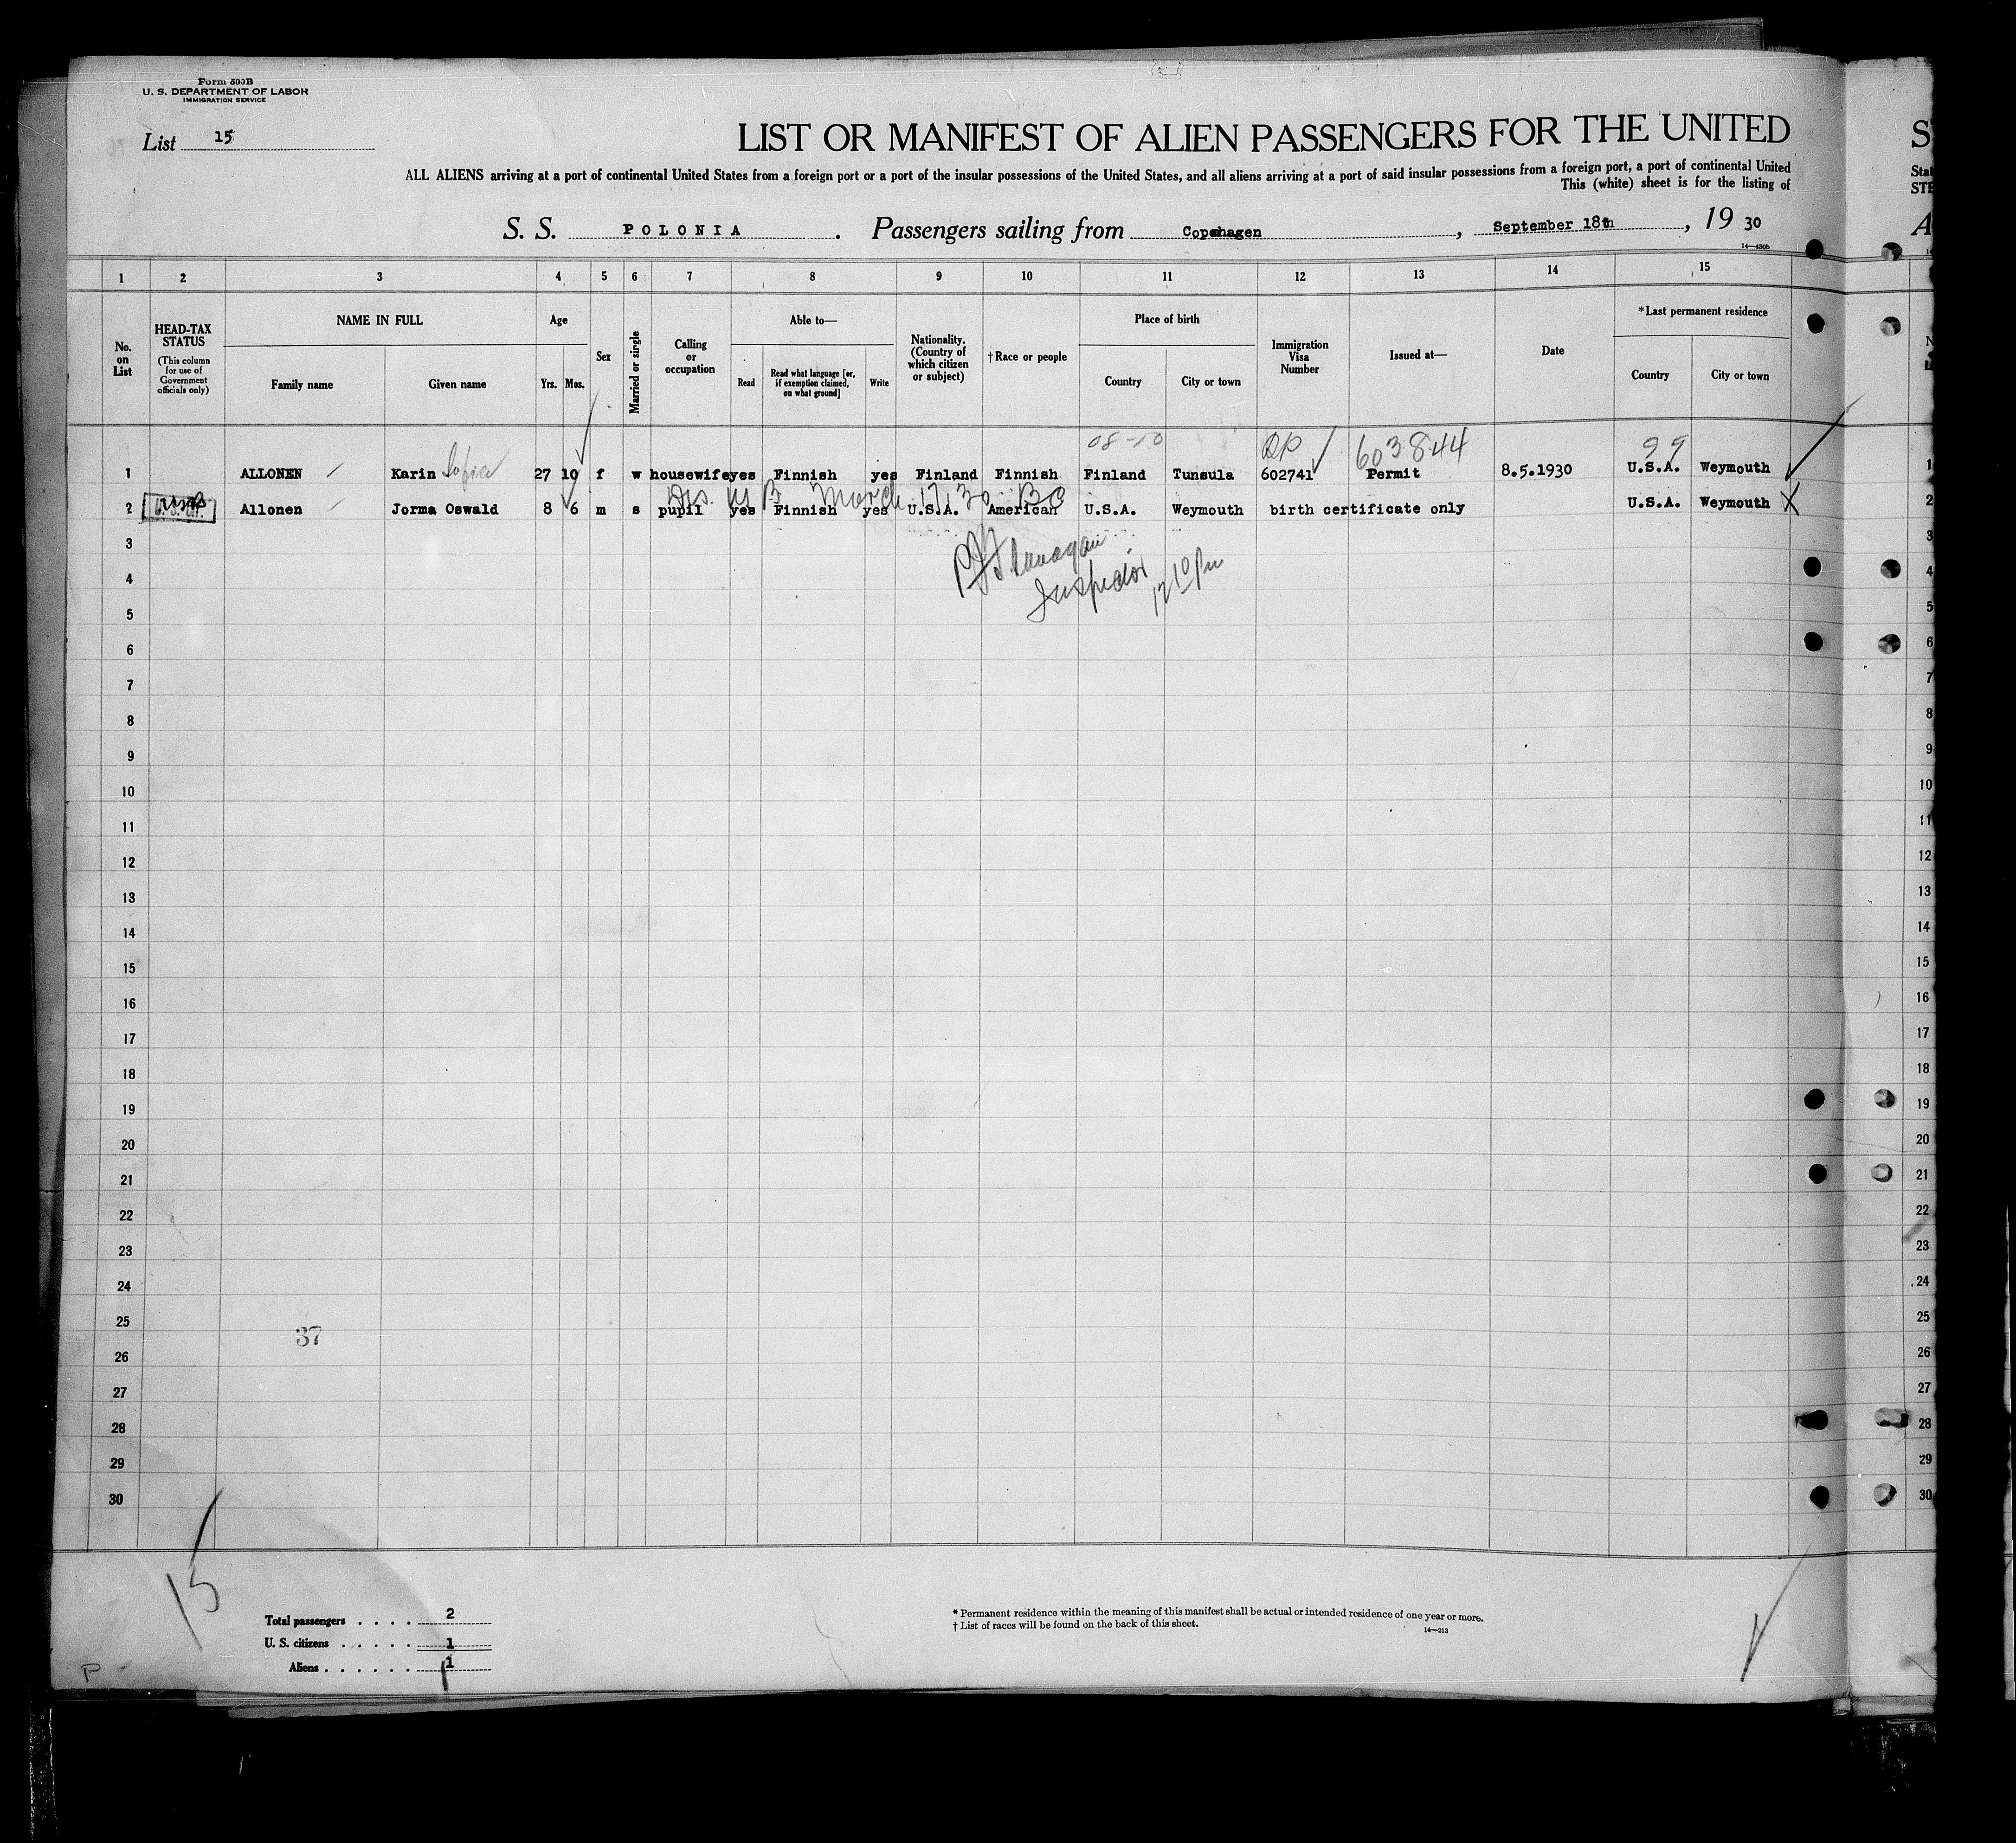 Form 500B
U. S. DEPARTMENT OF LABOR
IMMIGRATION SERVICE
List 15
LIST OR MANIFEST OF ALIEN PASSENGERS FOR THE UNITED
ALL ALIENS arriving at a port of continental United States from a foreign port or a port of the insular possessions of the United States, and all aliens arriving at a port of said insular possessions from a foreign port, a port of continental United
This (white) sheet is for the listing of
S. S. POLONIA. Passengers sailing from Copehagen, September 18th, 19 30
14—430b
1 2 3 4 5 6 7 8 9 10 11 12 13 14 15
No. on List
HEAD-TAX STATUS
(This column for use of Government officials only)
NAME IN FULL
Family name Given name
Age
Yrs. Mos.
Sex
Married or single
Calling or occupation
Able to—
Read
Read what language [or, if exemption claimed, on what ground]
Write
Nationality. (Country of which citizen or subject)
† Race or people
Place of birth
Country City or town
Immigration Visa Number
Issued at—
Date
* Last permanent residence
Country City or town
08-10 603844 99
1 ALLONEN Karin Sofia 27 10 f w housewife yes Finnish yes Finland Finnish Finland Tunsula 602741 Permit 8.5.1930 U.S.A. Weymouth 1
2 Allonen Jorma Oswald 8 6 m s pupil yes Finnish yes U.S.A. American U.S.A. Weymouth birth certificate only U.S.A. Weymouth 2
3 3
Flanagan
Inspector
4 4
5 5
6 6
7 7
8 8
9 9
10 10
11 11
12 12
13 13
14 14
15 15
16 16
17 17
18 18
19 19
20 20
21 21
22 22
23 23
24 24
25 25
37
26 26
27 27
28 28
29 29
30 30
15
Total passengers . . . . 2
U. S. citizens . . . . . 1
Aliens . . . . . . 1
* Permanent residence within the meaning of this manifest shall be actual or intended residence of one year or more.
† List of races will be found on the back of this sheet.
14—213
P